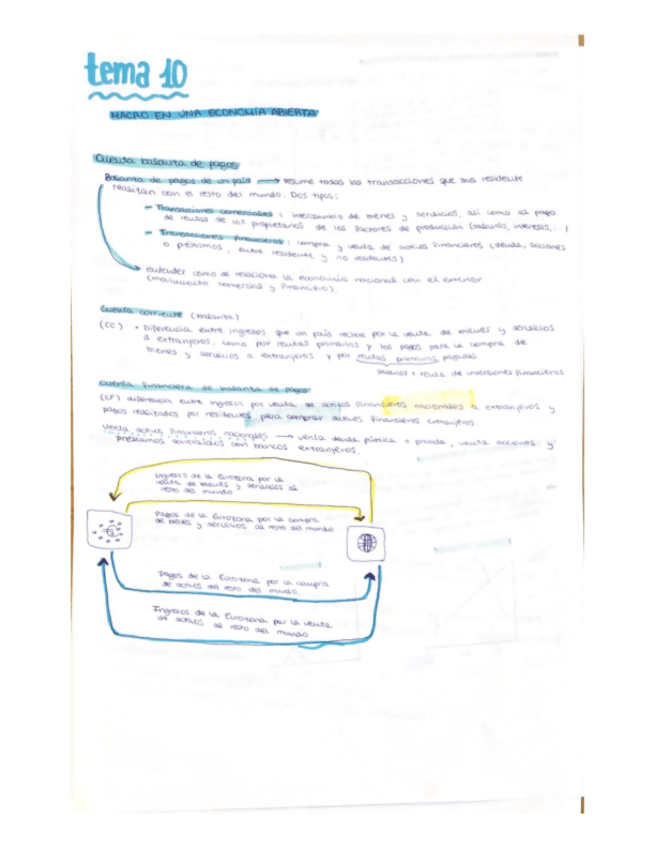 tema 10
MACRO EN UNA ECONOMÍA ABIERTA
Cuenta balanza de pagos
Balanza de pagos de un país → resume todas las transacciones que sus residente
realizan con el resto del mundo. Dos tipos:
- Transacciones comerciales: intercambio de bienes y servicios, así como el pago
de rentas de los propietarios de los factores de producción (salarios, intereses,...)
- Transacciones financieras: compra y venta de activos financieros (deuda, acciones
o préstamos, entre residente y no residentes)
entender como se relaciona la economía nacional con el exterior
(movimiento comercial y financiero).
Cuenta corriente (balanza)
(CC) • Diferencia entre ingresos que un país recibe por la venta de bienes y servicios
a extranjeros, como por rentas primarias y los pagos para la compra de
bienes y servicios a extranjeros y por rentas primarias pagadas
salarios + renta de inversiones financieras
Cuenta financiera de balanza de pagos
(CF) diferencia entre ingresos por venta de activos financieros nacionales a extranjeros y
pagos realizados por residentes para comprar activos financieros extranjeros.
Venta activos financieros nacionales → venta deuda pública o privada, venta acciones y
préstamos contraídos con bancos extranjeros.
Ingresos de la Eurozona por la
venta de bienes y servicios al
resto del mundo
Pagos de la Eurozona por la compra
de bienes y servicios al resto del mundo
Pagos de la Eurozona por la compra
de activos del resto del mundo.
Ingresos de la Eurozona por la venta
de activos al resto del mundo